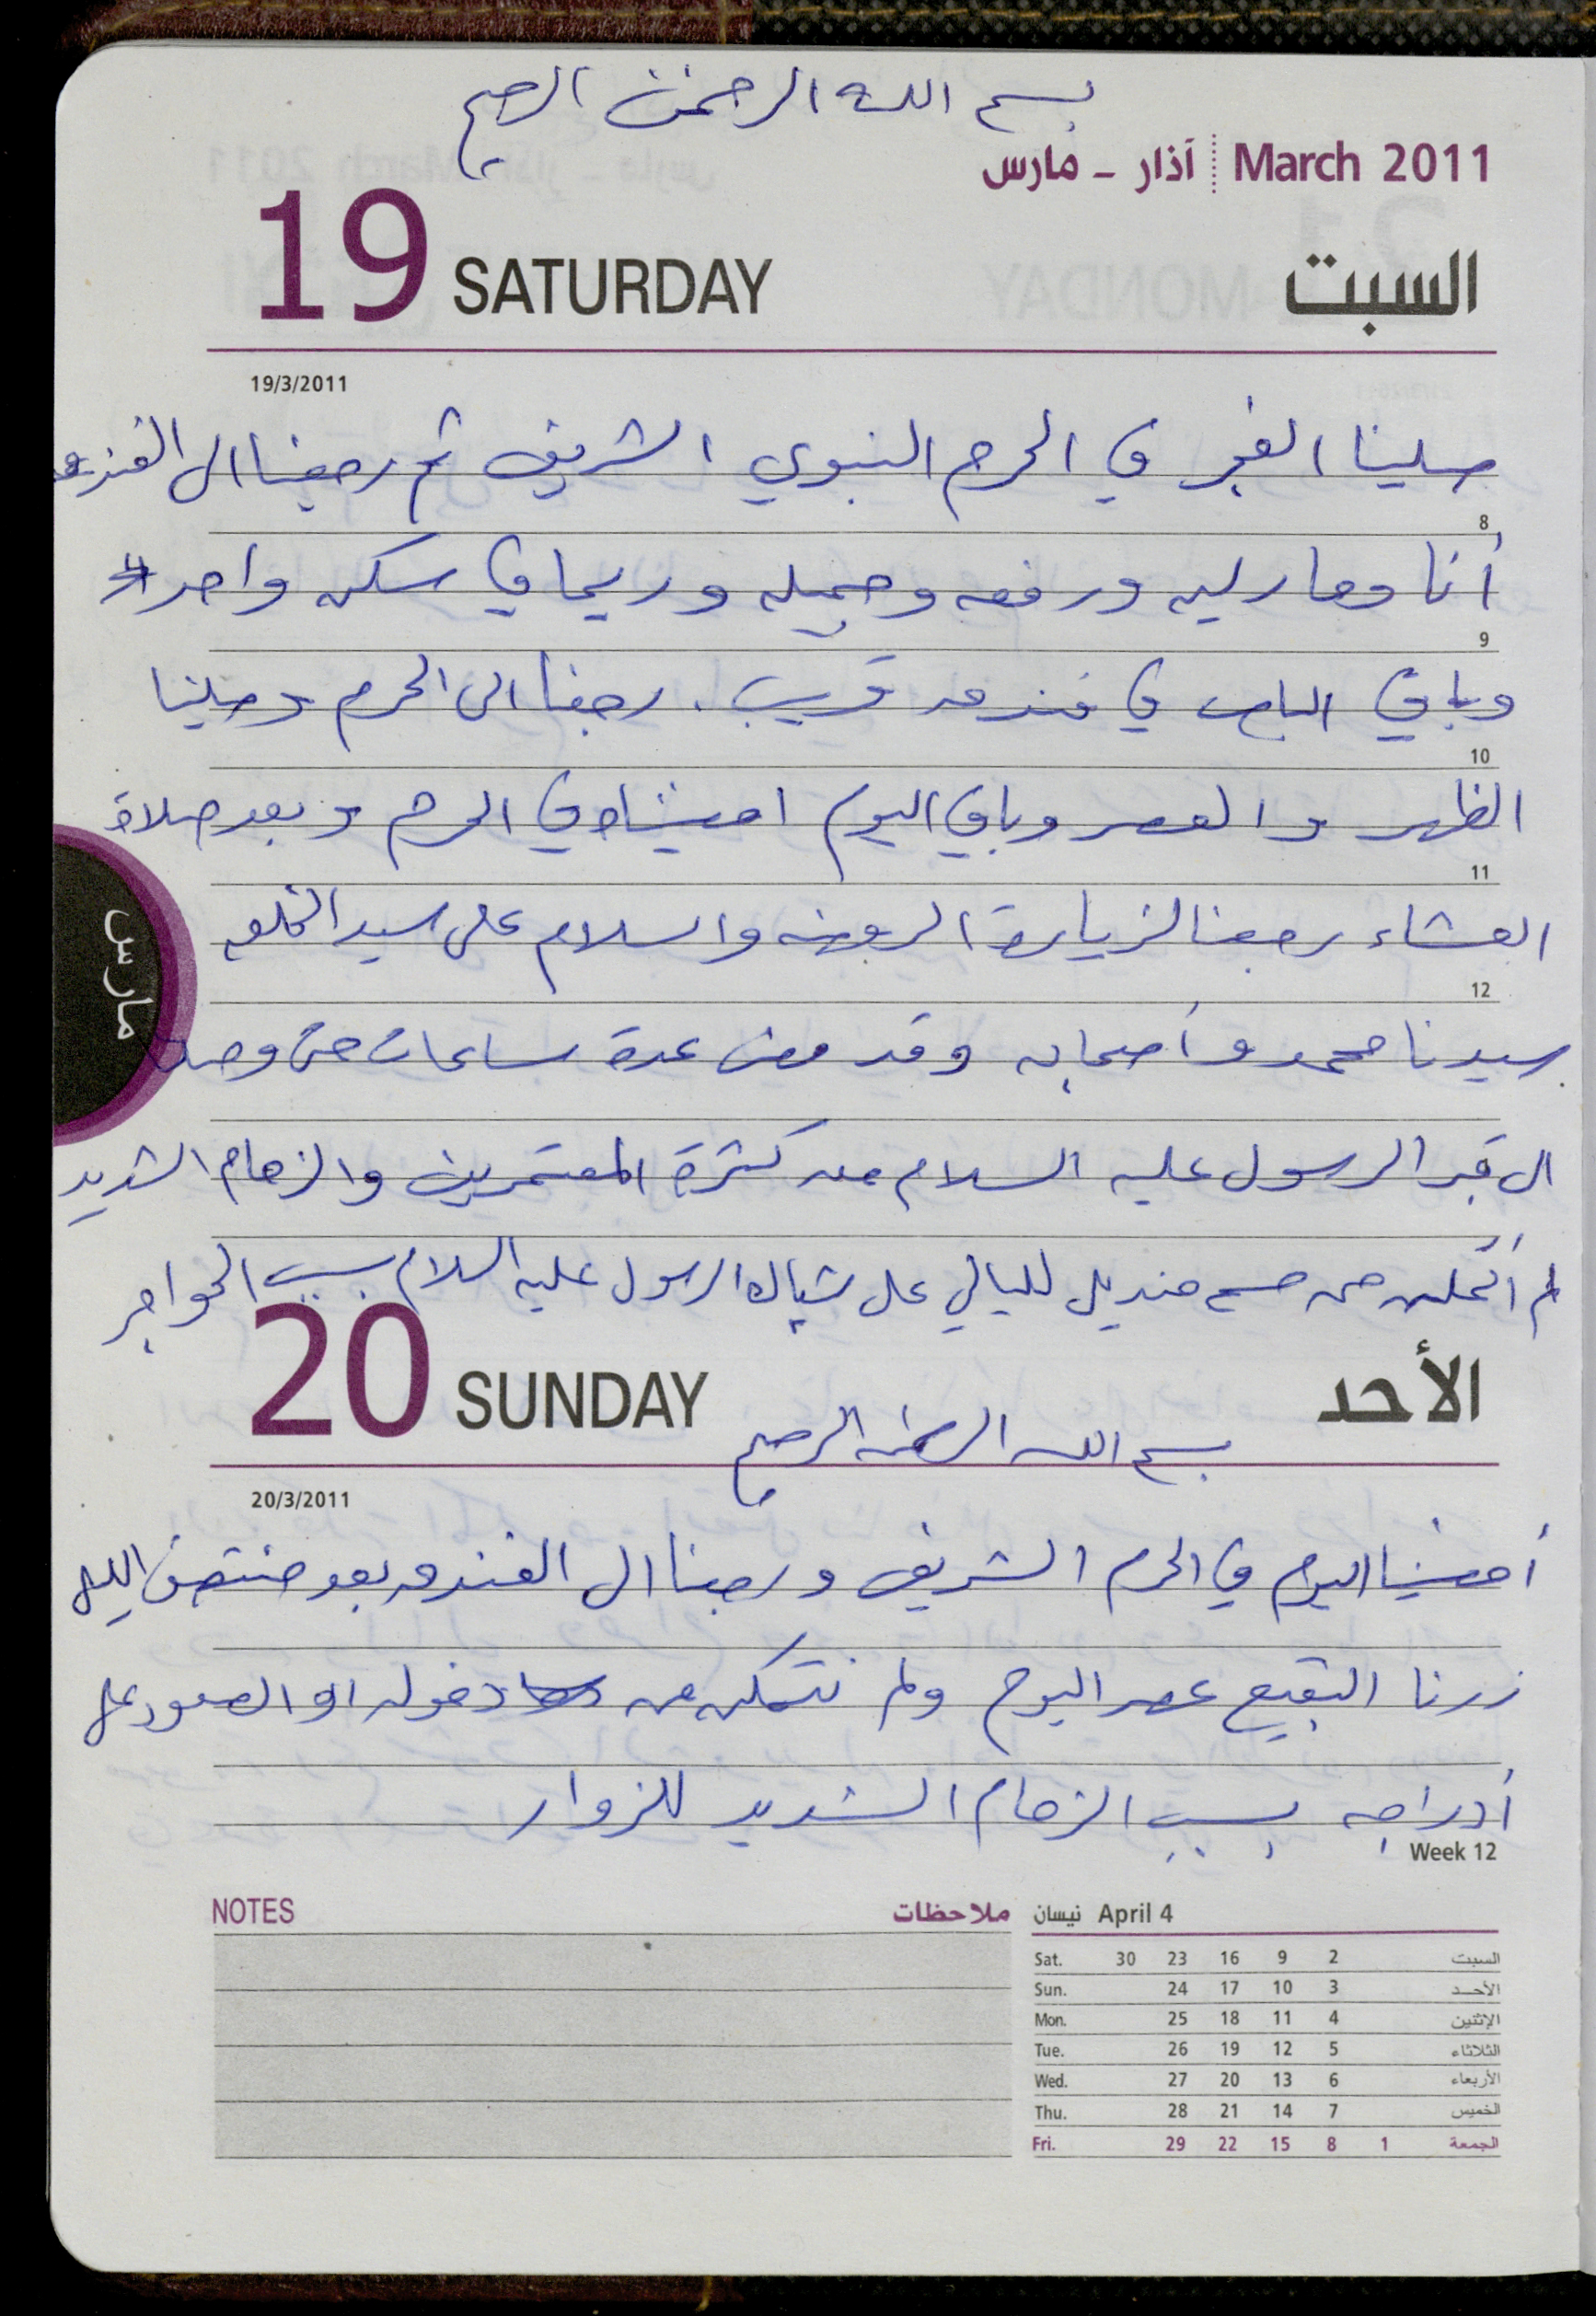 بسم الله الرحمن الرحيم
March 2011 آذار - مارس
19 SATURDAY السبت
19/3/2011
صلينا الفجر في الحرم النبوي الشريف ثم رجعنا الى الفندق
8
أنا وماريه ورفعه وجميله وريما في سكن واحد
9
وباقي الباص في فندق قريب. رجعنا الى الحرم وصلينا
10
الظهر والعصر وباقي اليوم امضيناه في الحرم وبعد صلاة
11
العشاء رجعنا لزيارة الروضه والسلام على سيد الخلق
12
سيدنا محمد وأصحابه وقد مضى عدة ساعات حتى وصلنا
الى قبر الرسول عليه السلام من كثرة المعتمرين والزحام الشديد
لم أتمكن من مسح منديل لليالي على شباك الرسول عليه السلام بسبب الحواجز
مارس
20 SUNDAY الأحد
بسم الله الرحمن الرحيم
20/3/2011
أمضينا اليوم في الحرم الشريف ورجعنا الى الفندق بعد منتصف الليل
زرنا البقيع عصر اليوم ولم نتمكن من دخوله او الصعود على
أدراجه بسبب الزحام الشديد للزوار
Week 12
NOTES ملاحظات
نيسان April 4
Sat. 30 23 16 9 2 السبت
Sun. 24 17 10 3 الأحـد
Mon. 25 18 11 4 الإثنين
Tue. 26 19 12 5 الثلاثاء
Wed. 27 20 13 6 الأربعاء
Thu. 28 21 14 7 الخميس
Fri. 29 22 15 8 1 الجمعة